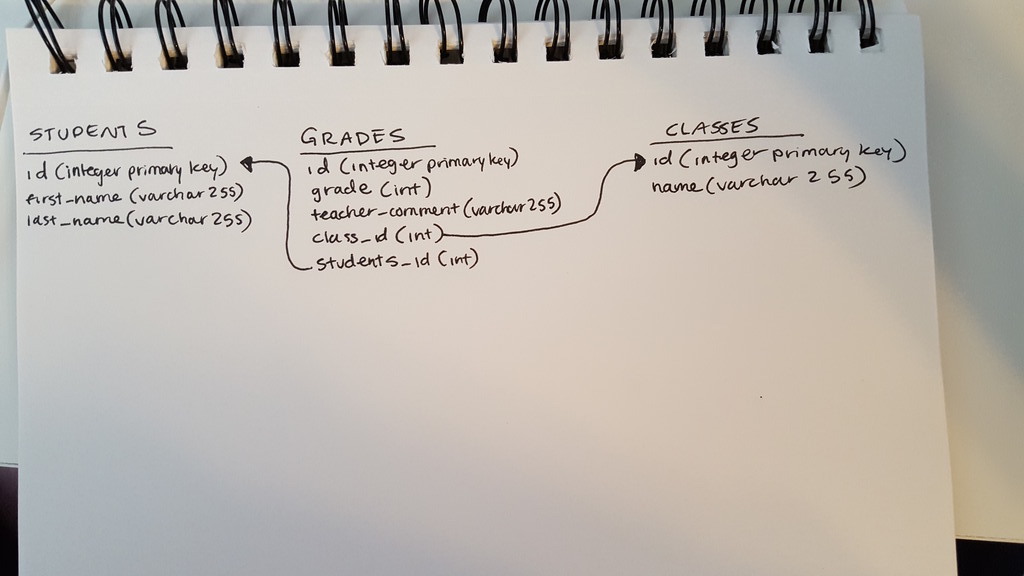 STUDENTS
id (integer primary key)
first_name (varchar 255)
last_name (varchar 255)
GRADES
id (integer primary key)
grade (int)
teacher_comment (varchar 255)
class_id (int)
students_id (int)
CLASSES
id (integer primary key)
name (varchar 255)